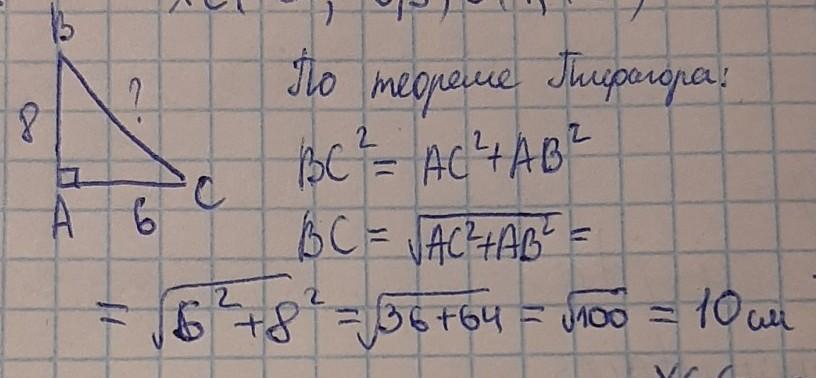 B
8
?
A
6
C
По теореме Пифагора:
BC² = AC² + AB²
BC = √AC²+AB² =
= √6² + 8² = √36+64 = √100 = 10 см